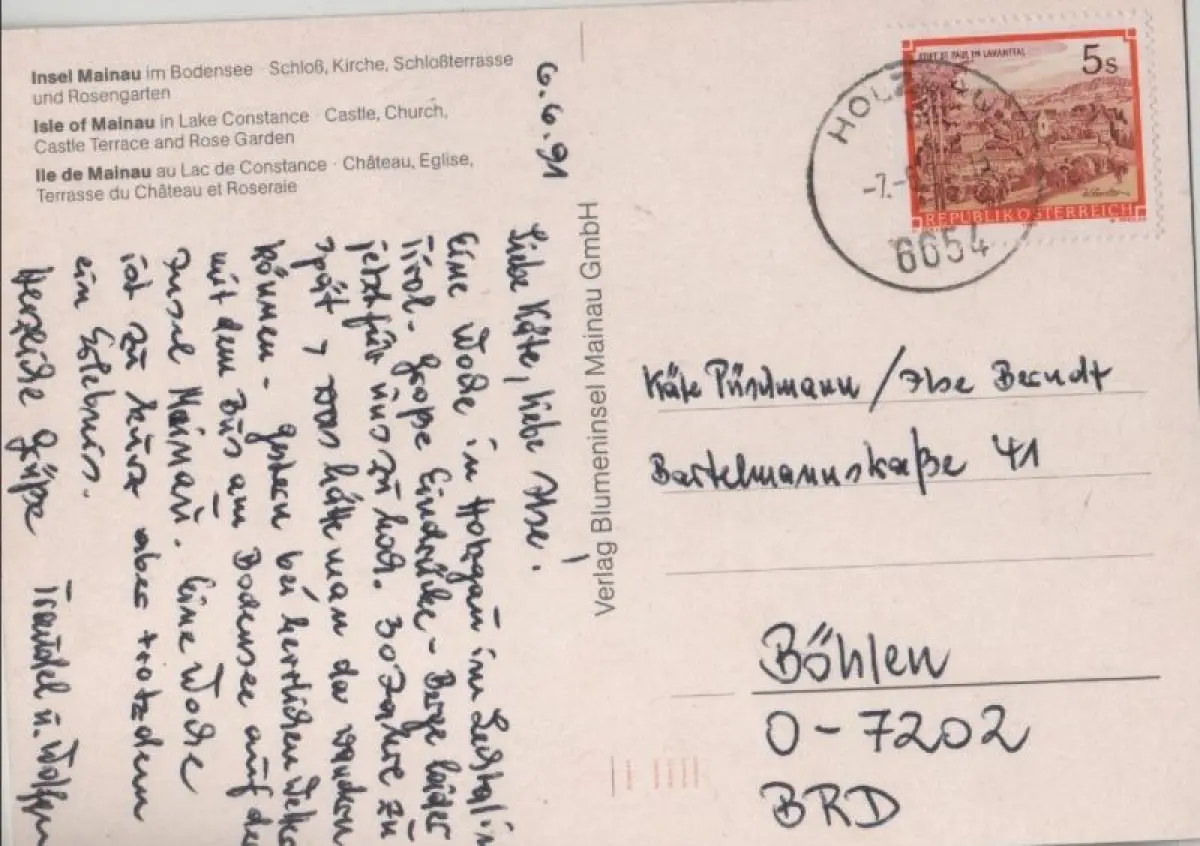 Insel Mainau im Bodensee · Schloß, Kirche, Schloßterrasse
und Rosengarten
Isle of Mainau in Lake Constance · Castle, Church,
Castle Terrace and Rose Garden
Ile de Mainau au Lac de Constance · Château, Eglise,
Terrasse du Château et Roseraie
6.6.91
Liebe Käte, liebe Ilse!
Eine Woche in Holzgau im Lechtal in
Tirol. Große Eindrücke - Berge leider
jetzt für uns zu hoch. 30 Jahre zu
spät, was hätte man da wandern
können - gestern bei herrlichem Wetter
mit dem Bus am Bodensee auf der
Insel Mainau. Eine Woche
ist zu kurz aber trotzdem
ein Erlebnis.
Herzliche Grüße Traudel u.
Verlag Blumeninsel Mainau GmbH
5s
STIFT ST. PAUL IM LAVANTTAL
REPUBLIK ÖSTERREICH
6654
Käte Püschmann / Ilse Berndt
Bartelmannstraße 41
Böhlen
O-7202
BRD